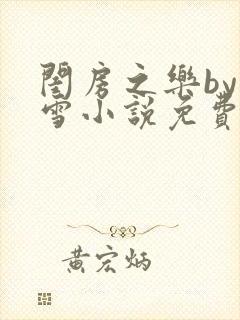 閨房之樂by
雪小說免費
黃宏炳